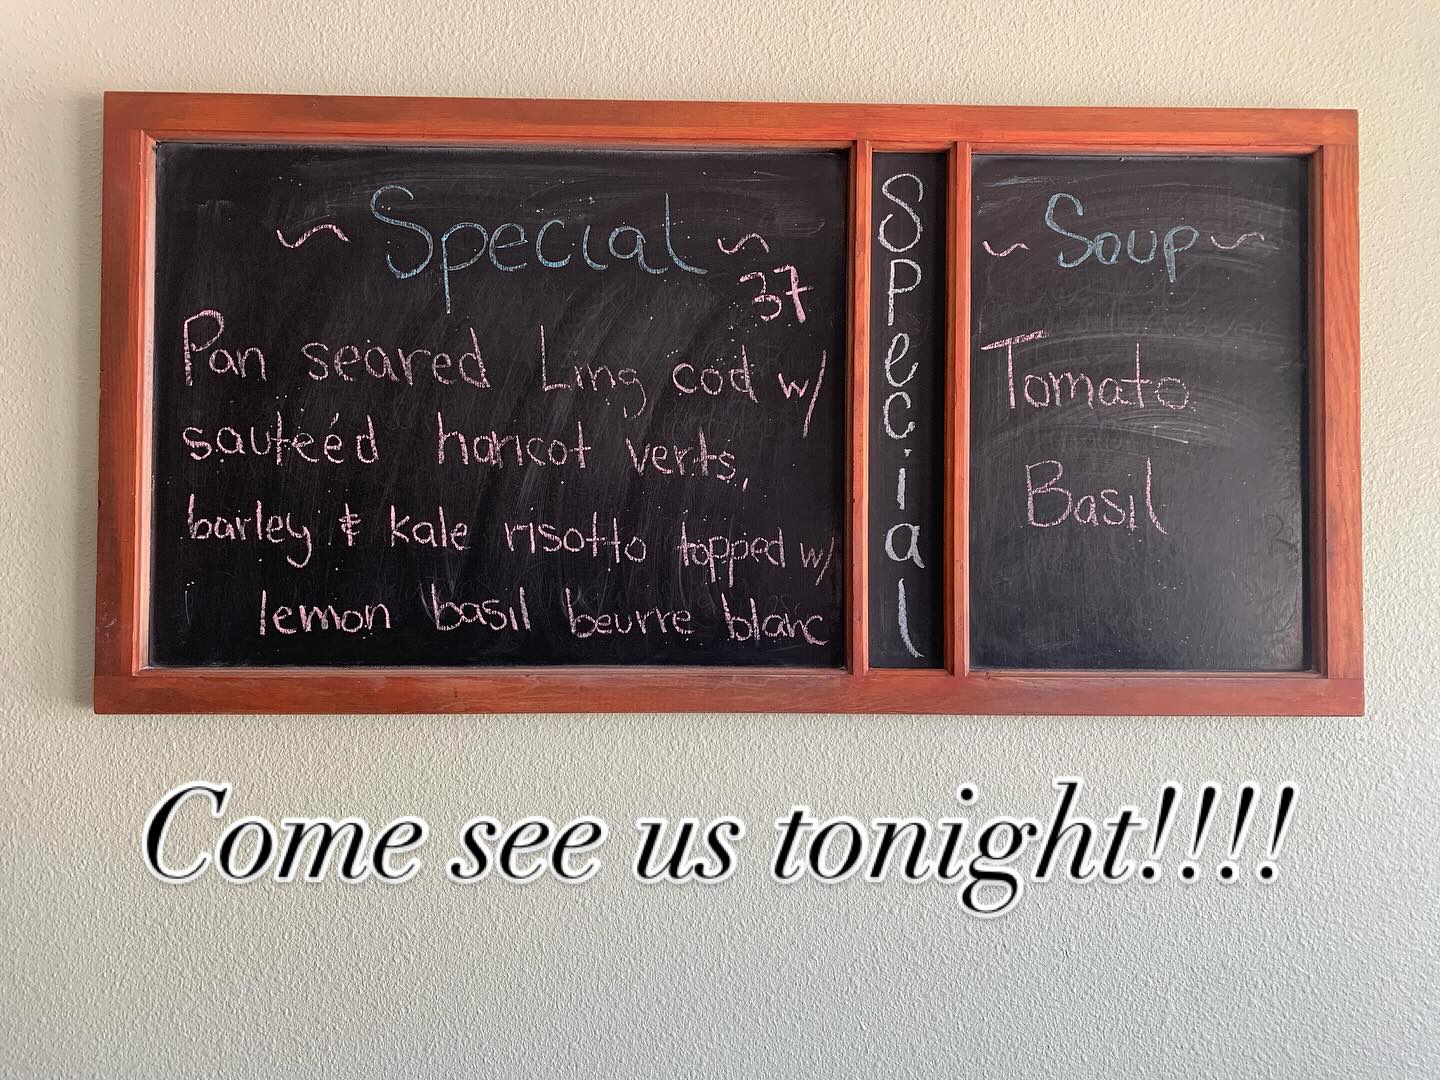 ~ Special ~
37
Pan seared Ling cod w/
sauteéd haricot verts,
barley & kale risotto topped w/
lemon basil beurre blanc
Special
~ Soup ~
Tomato
Basil
Come see us tonight!!!!